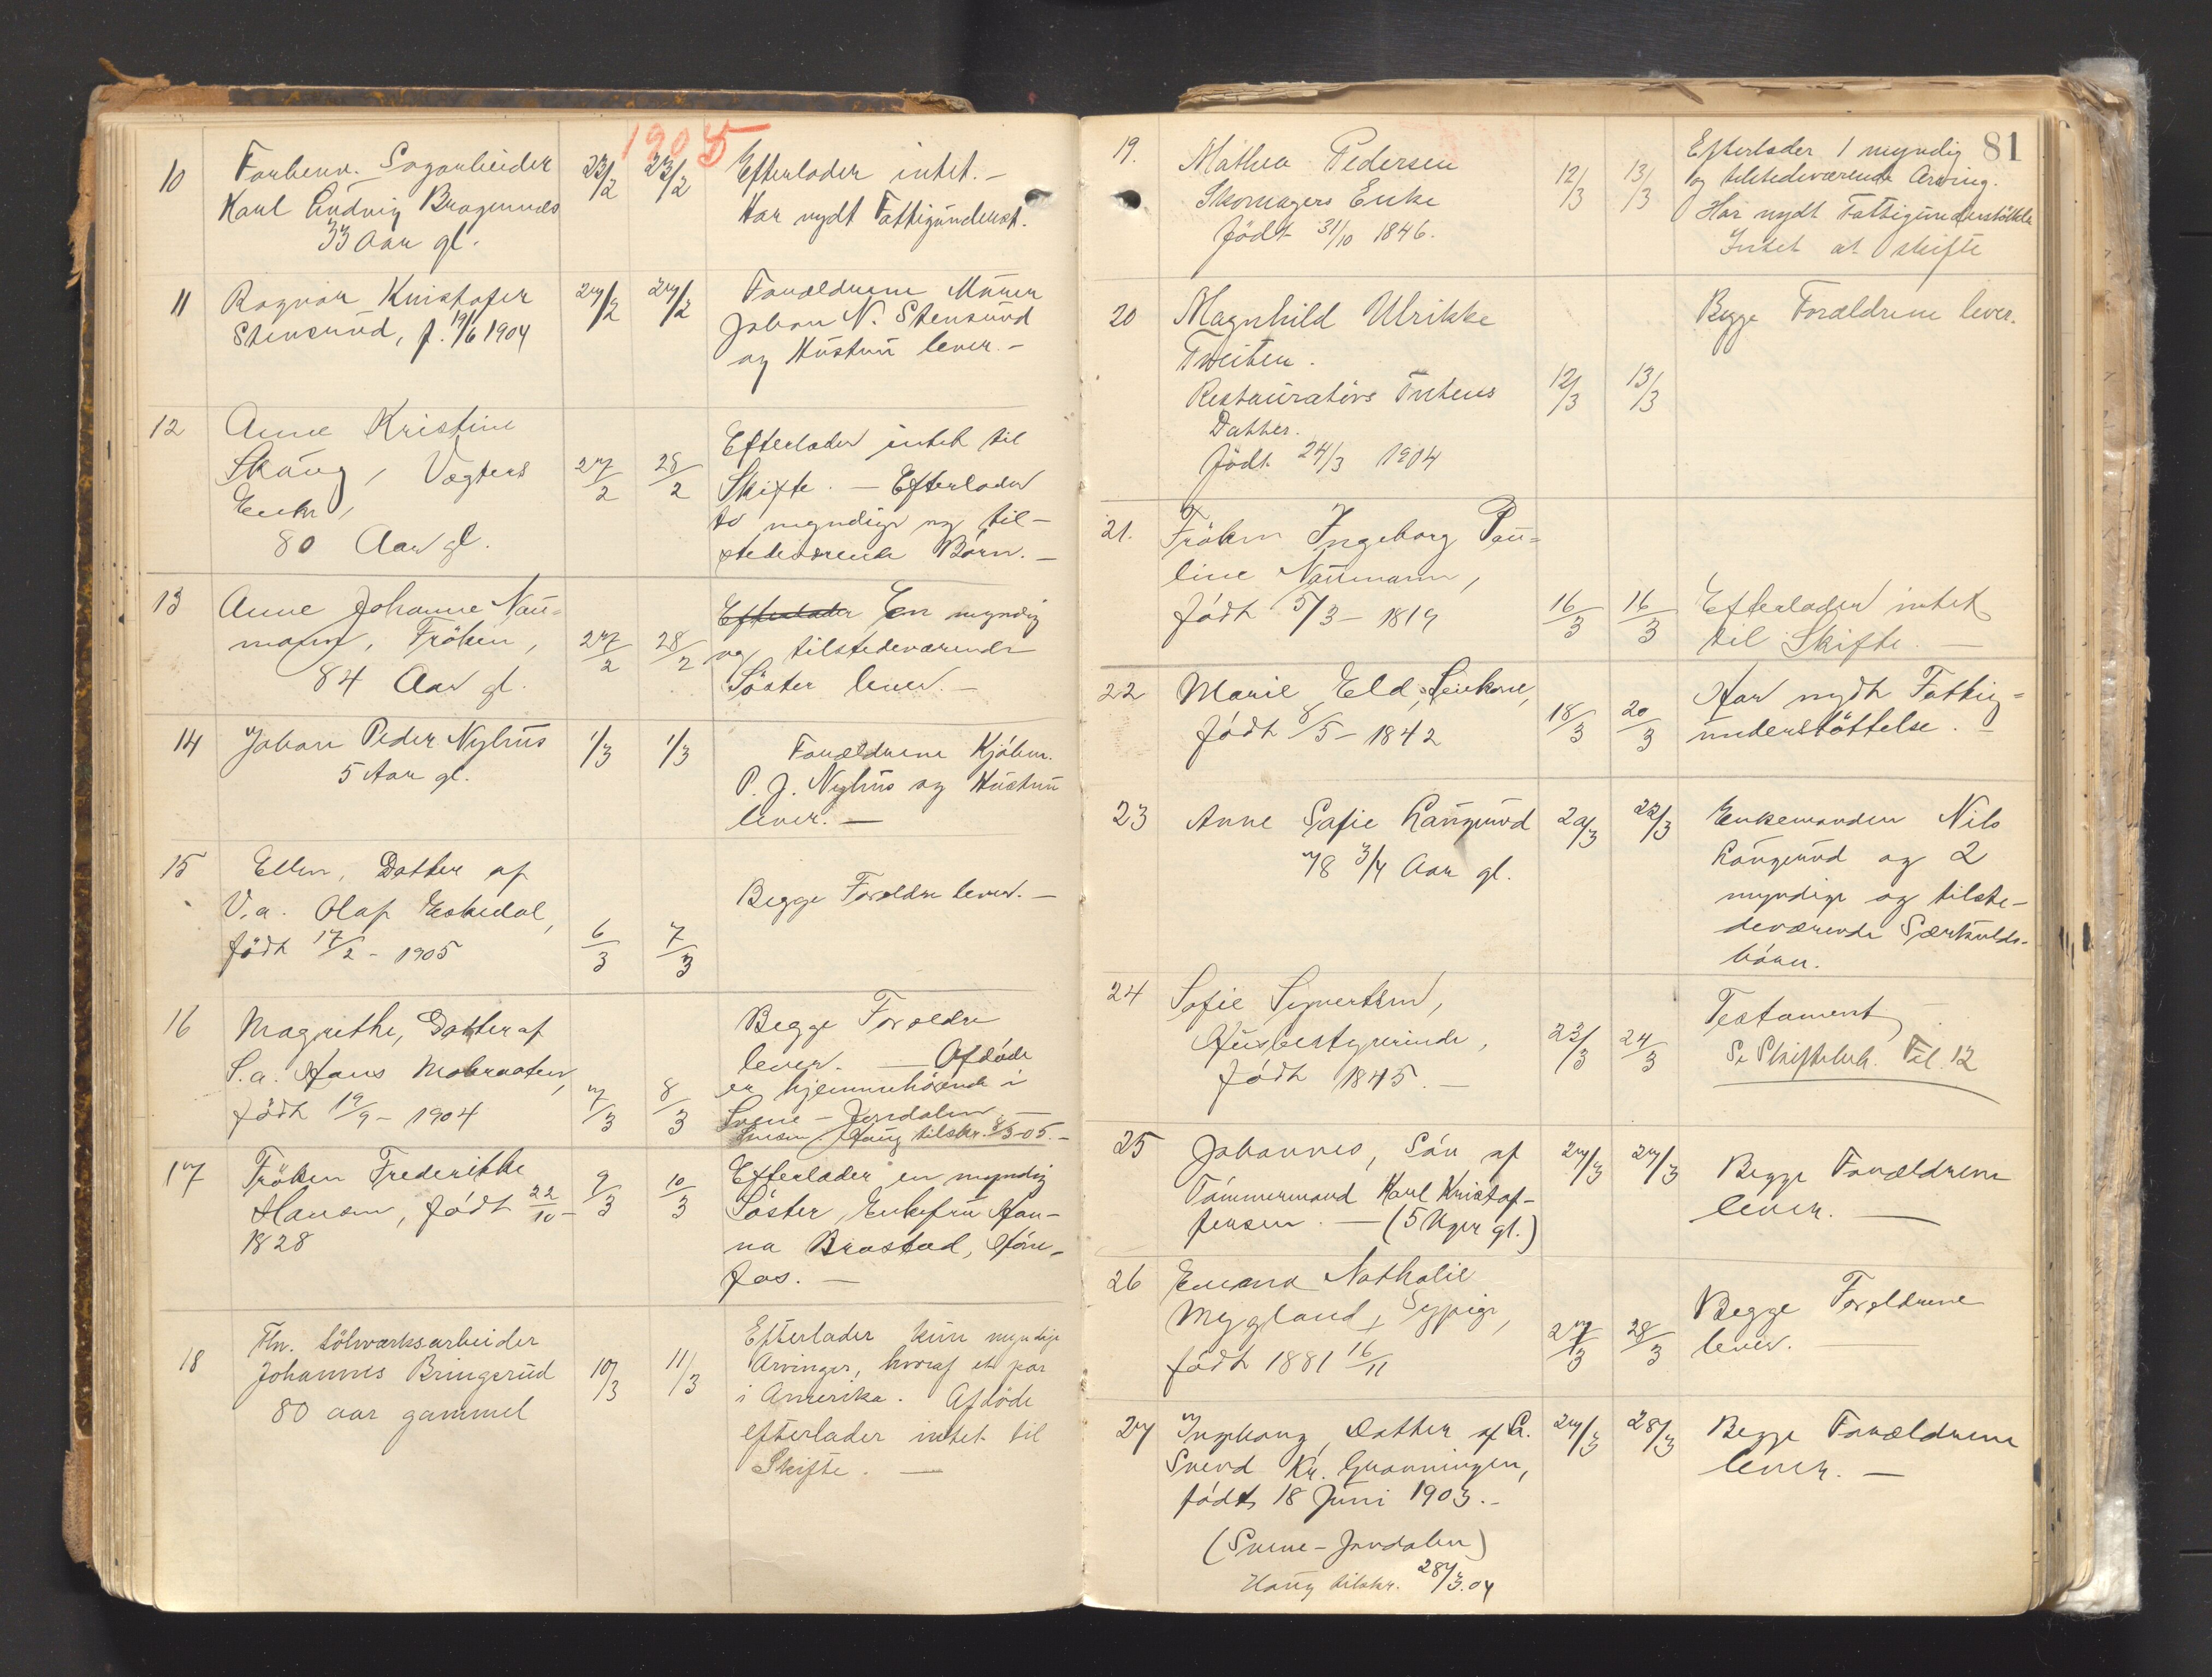 1905
10
Forhenv. Sagarbeider
Karl Ludvig Bragernæs
33 Aar gl.
23/2
23/2
Efterlader intet. —
Har nydt Fattigunderst.
11
Ragnar Kristofer
Stensrud, f. 19/6 1904
27/2
27/2
Forældrene Murer
Johan N. Stensrud
og Hustru lever. —
12
Anne Kristine
Skaug, Vægters
Enke,
80 Aar gl.
27/2
28/2
Efterlader intet til
Skifte. — Efterlader
to myndige og til-
stedeværende Børn. —
13
Anne Johanne Nau=
mann, Frøken,
84 Aar gl.
27/2
28/2
Efterlader En myndig
og tilstedeværende
Søster lever. —
14
Johan Peder Nyhus
5 Aar gl.
1/3
1/3
Forældrene Kjøbm.
P. J. Nyhus og Hustru
lever. —
15
Ellen, Datter af
V.a. Olaf Eskedal,
født 17/2 - 1905
6/3
7/3
Begge Forældre lever. —
16
Magrethe, Datter af
S.a. Hans Mobraaten,
født 19/9 - 1904
7/3
8/3
Begge Forældre
lever. — Afdøde
er hjemmehørende i
Svene - Jondalen —
Lensm. Haug tilskr. 8/3-05. —
17
Frøken Frederikke
Hansen, født 22/10 -
1828
9/3
10/3
Efterlader en myndig
Søster, Enkefru Han-
na Brastad, Høne-
fos. —
18
Fhv. Sølvværksarbeider
Johannes Bringerud
80 aar gammel
10/3
11/3
Efterlader kun myndige
Arvinger, hvoraf et par
i Amerika. Afdøde
efterlader intet til
Skifte. —
81
19.
Mathea Pedersen
Skomagers Enke
Født 31/10 1846.
12/3
13/3
Efterlader 1 myndig
og tilstedeværende Arving.
Har nydt Fattigunderstøttelse
Intet at skifte
20
Magnhild Ulrikke
Tveiten.
Restauratørs Tveitens
Datter.
Født 24/3 1904
12/3
13/3
Begge Forældrene lever.
21.
Frøken Ingeborg Pau=
line Naumann,
født 5/3 - 1819
16/3
16/3
Efterlader intet
til Skifte. —
22
Marie Eld,
født 8/5 - 1842
18/3
20/3
Har nydt Fattig=
understøttelse. —
23
Anne Sofie Langerud
78 3/4 Aar gl.
20/3
22/3
Enkemanden Nils
Langerud og 2
myndige og tilste-
deværende Særkulds-
børn.
24
Sofie Syvertsen,
Husbestyrerinde,
født 1845. —
23/3
24/3
Testament
Se Skifteb. Fol. 12
25
Johannes, Søn af
Tømmermand Karl Kristof-
fersen. — (5 Uger gl.)
27/3
27/3
Begge Forældrene
lever. —
26
Emma Nathalie
Mygland, Sypige,
født 1881 16/11
27/3
28/3
Begge Forældrene
lever. —
27
Ingeborg, Datter af G.
Svend Kr. Grønningen,
født 18 Juni 1903. -
(Svene - Jondalen)
Haug tilskr. 28/3.04
27/3
28/3
Begge Forældrene
lever. —